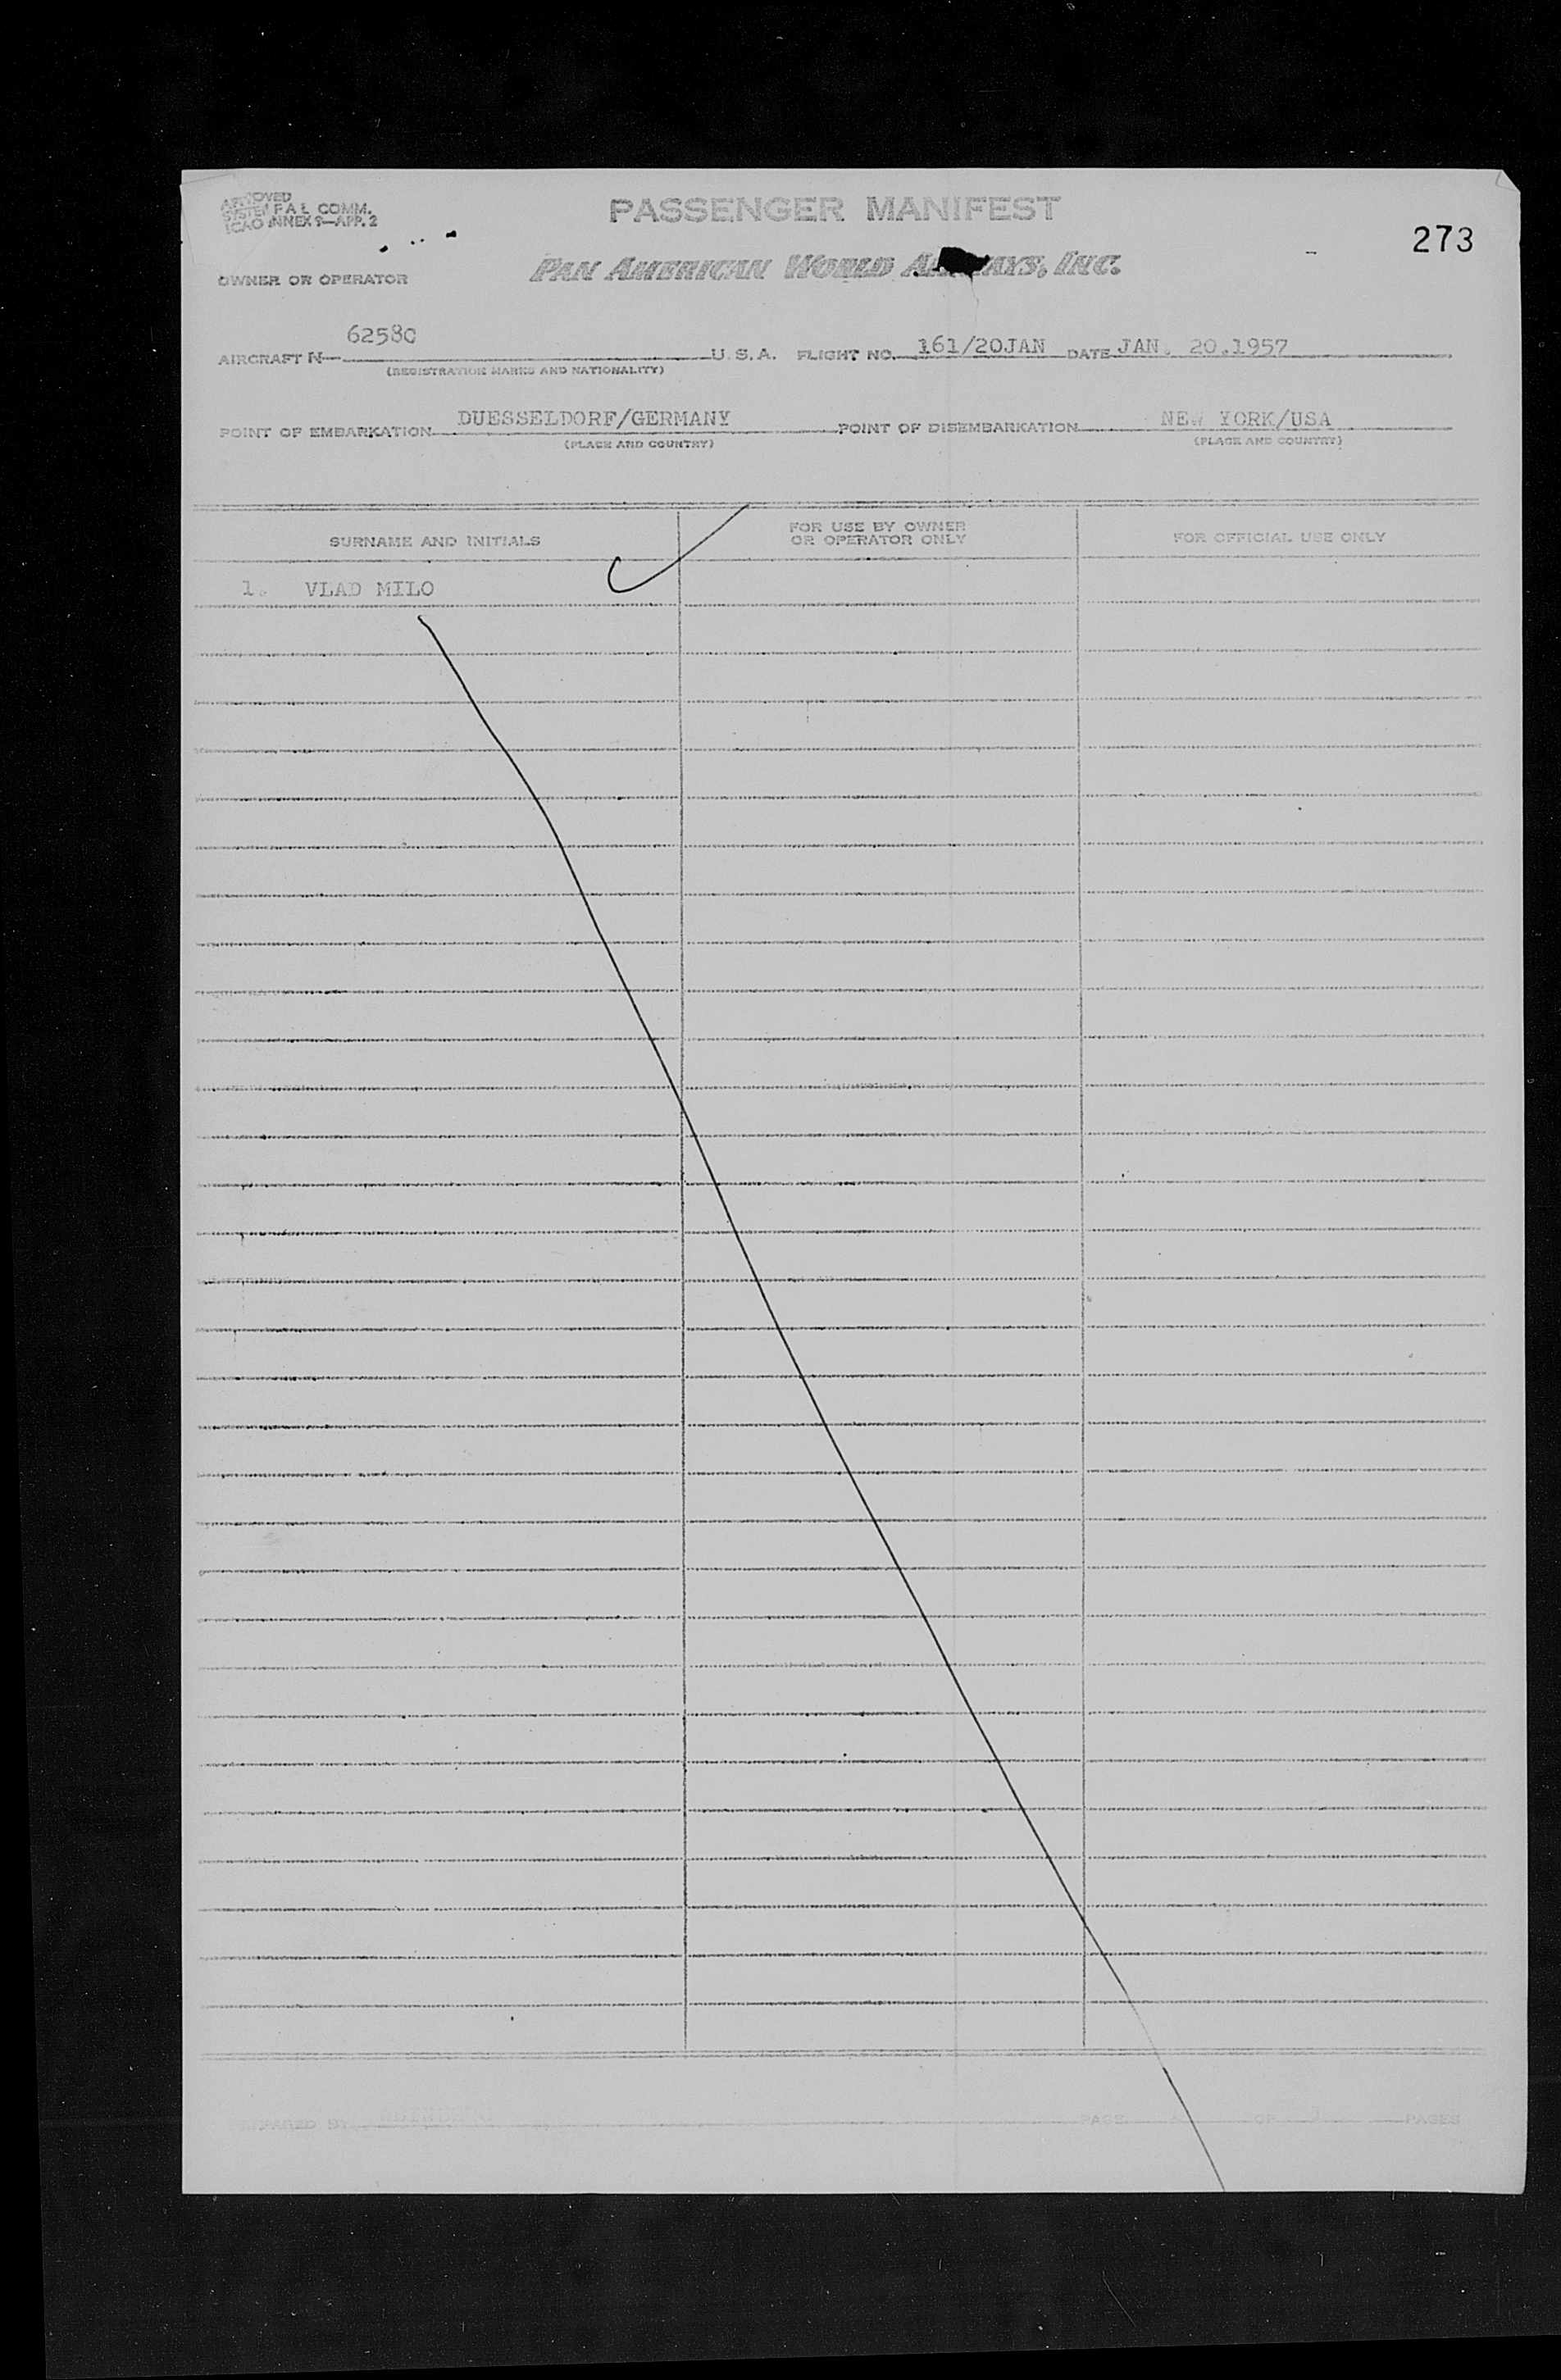 APPROVED
SYSTEM F A L COMM.
ICAO ANNEX 9—APP. 2
PASSENGER MANIFEST
273
OWNER OR OPERATOR
PAN AMERICAN WORLD AIRWAYS, INC.
AIRCRAFT N— 6258C U. S. A. FLIGHT NO. 161/20JAN DATE JAN. 20.1957
(REGISTRATION MARKS AND NATIONALITY)
POINT OF EMBARKATION DUESSELDORF/GERMANY POINT OF DISEMBARKATION NEW YORK/USA
(PLACE AND COUNTRY) (PLACE AND COUNTRY)
SURNAME AND INITIALS FOR USE BY OWNER OR OPERATOR ONLY FOR OFFICIAL USE ONLY
1. VLAD MILO
PREPARED BY PAGE OF PAGES